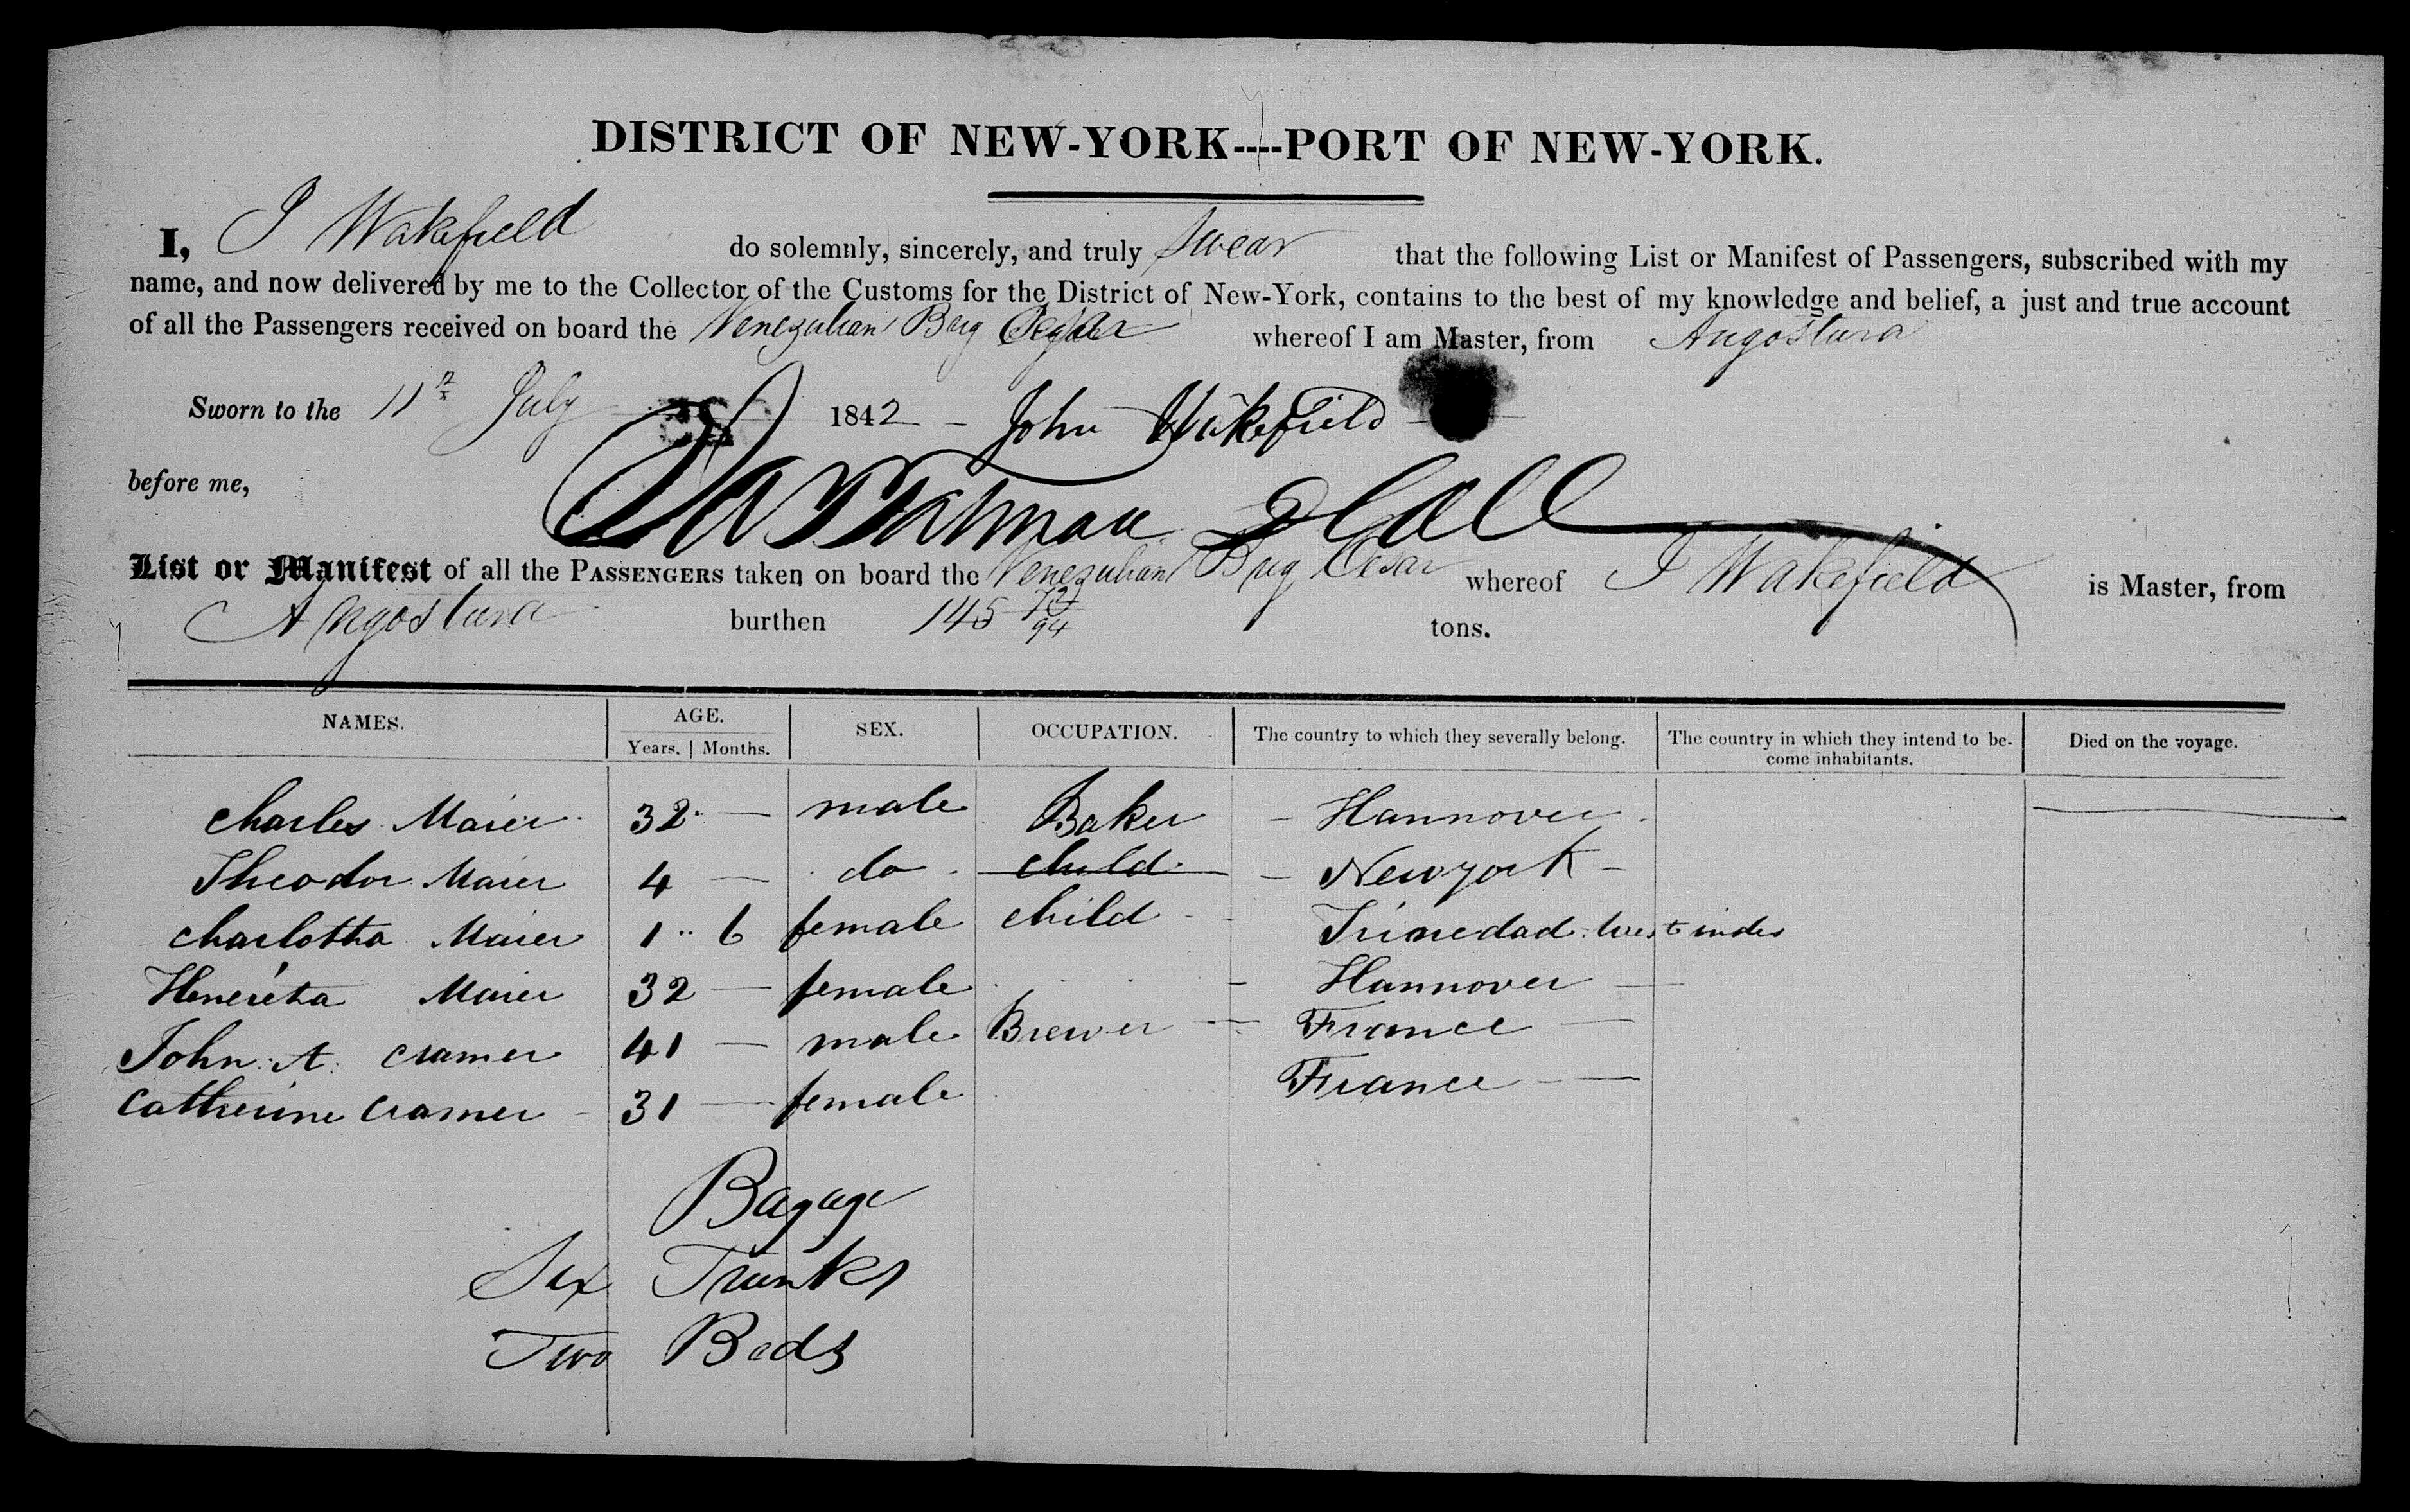 DISTRICT OF NEW-YORK----PORT OF NEW-YORK.
I, J Wakefield do solemnly, sincerely, and truly Swear that the following List or Manifest of Passengers, subscribed with my
name, and now delivered by me to the Collector of the Customs for the District of New-York, contains to the best of my knowledge and belief, a just and true account
of all the Passengers received on board the Venezulian Brig whereof I am Master, from Angostura
Sworn to the 11th July 1842 - John Wakefield
before me,
List or Manifest of all the PASSENGERS taken on board the Venezulian Brig Cesar whereof J Wakefield is Master, from
Angostura burthen 145 72/94 tons.
NAMES. AGE. SEX. OCCUPATION. The country to which they severally belong. The country in which they intend to be- Died on the voyage.
Years. | Months. come inhabitants.
Charles Maier 32 — male Baker - Hannover
Theodor Maier 4 — do child - Newyork -
Charlotta Maier 1 .. 6 female child Trinedad West indes
Henerita Maier 32 — female - Hannover —
John A. Cramer 41 — male Brewer — France —
Catherine Cramer - 31 — female France —
Bagage
Six Trunks
Two Beds